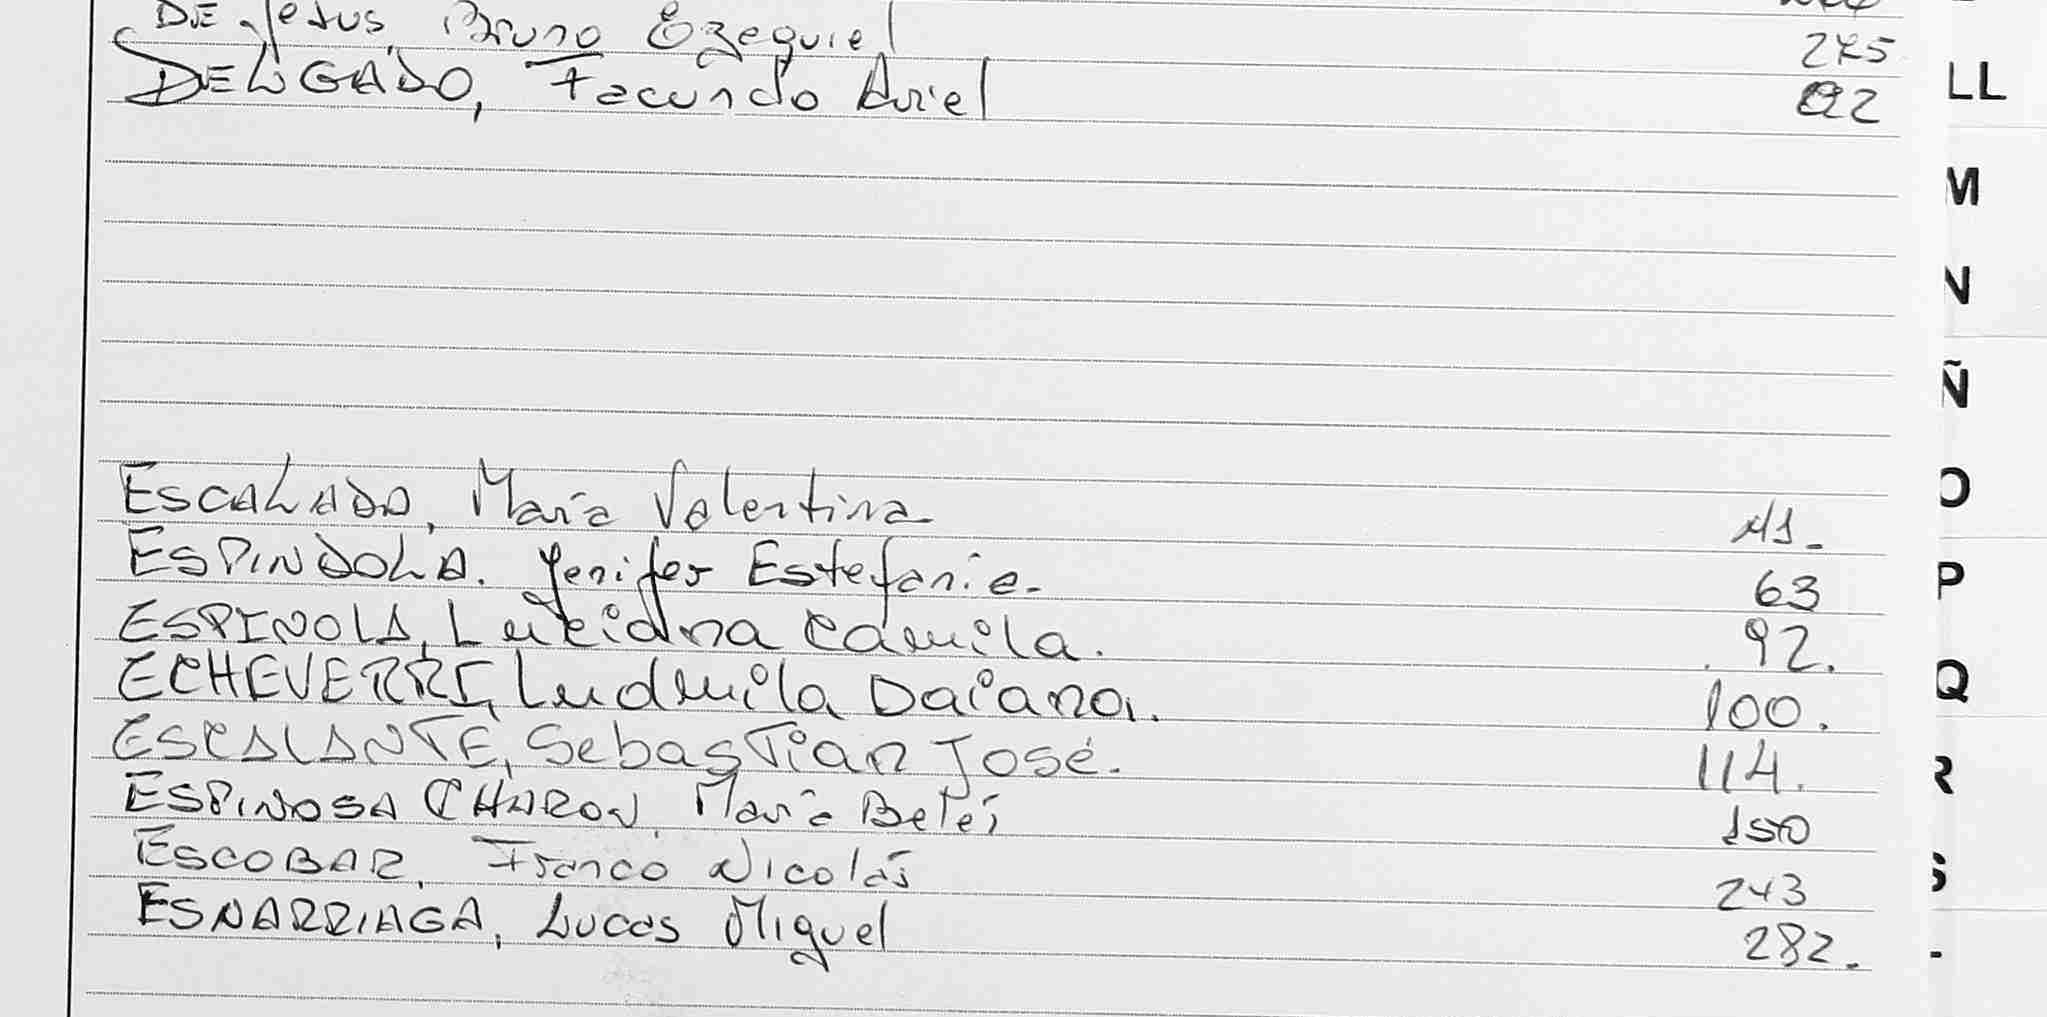 DE Jesus, Bruno Ezequiel 275
DELGADO, Facundo Ariel
LL
M
N
Ñ
O
ESCALADO, María Valentina
ESPINDOLA. Yenifer Estefanie. 63
P
ESPINOLA, Luciana Camila. 92.
ECHEVERRI, Ludmila Daiana. 100.
Q
ESCALANTE, Sebastian José. 114.
R
ESPINOSA CHARON, María Belén 150
ESCOBAR, Franco Nicolás 243
S
ESNARRIAGA, Lucas Miguel 282.